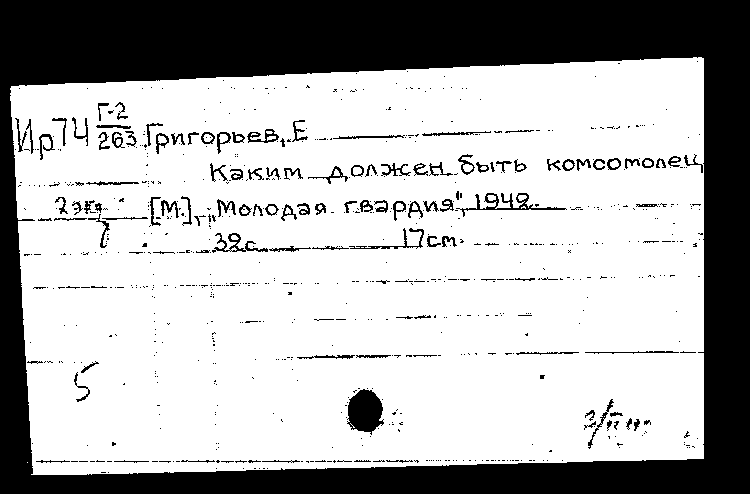 Ир74 Г-2/263 Григорьев, Е
Каким должен быть комсомолец
2 экз [М.], „Молодая гвардия", 1942.
32 с 17 см.
5